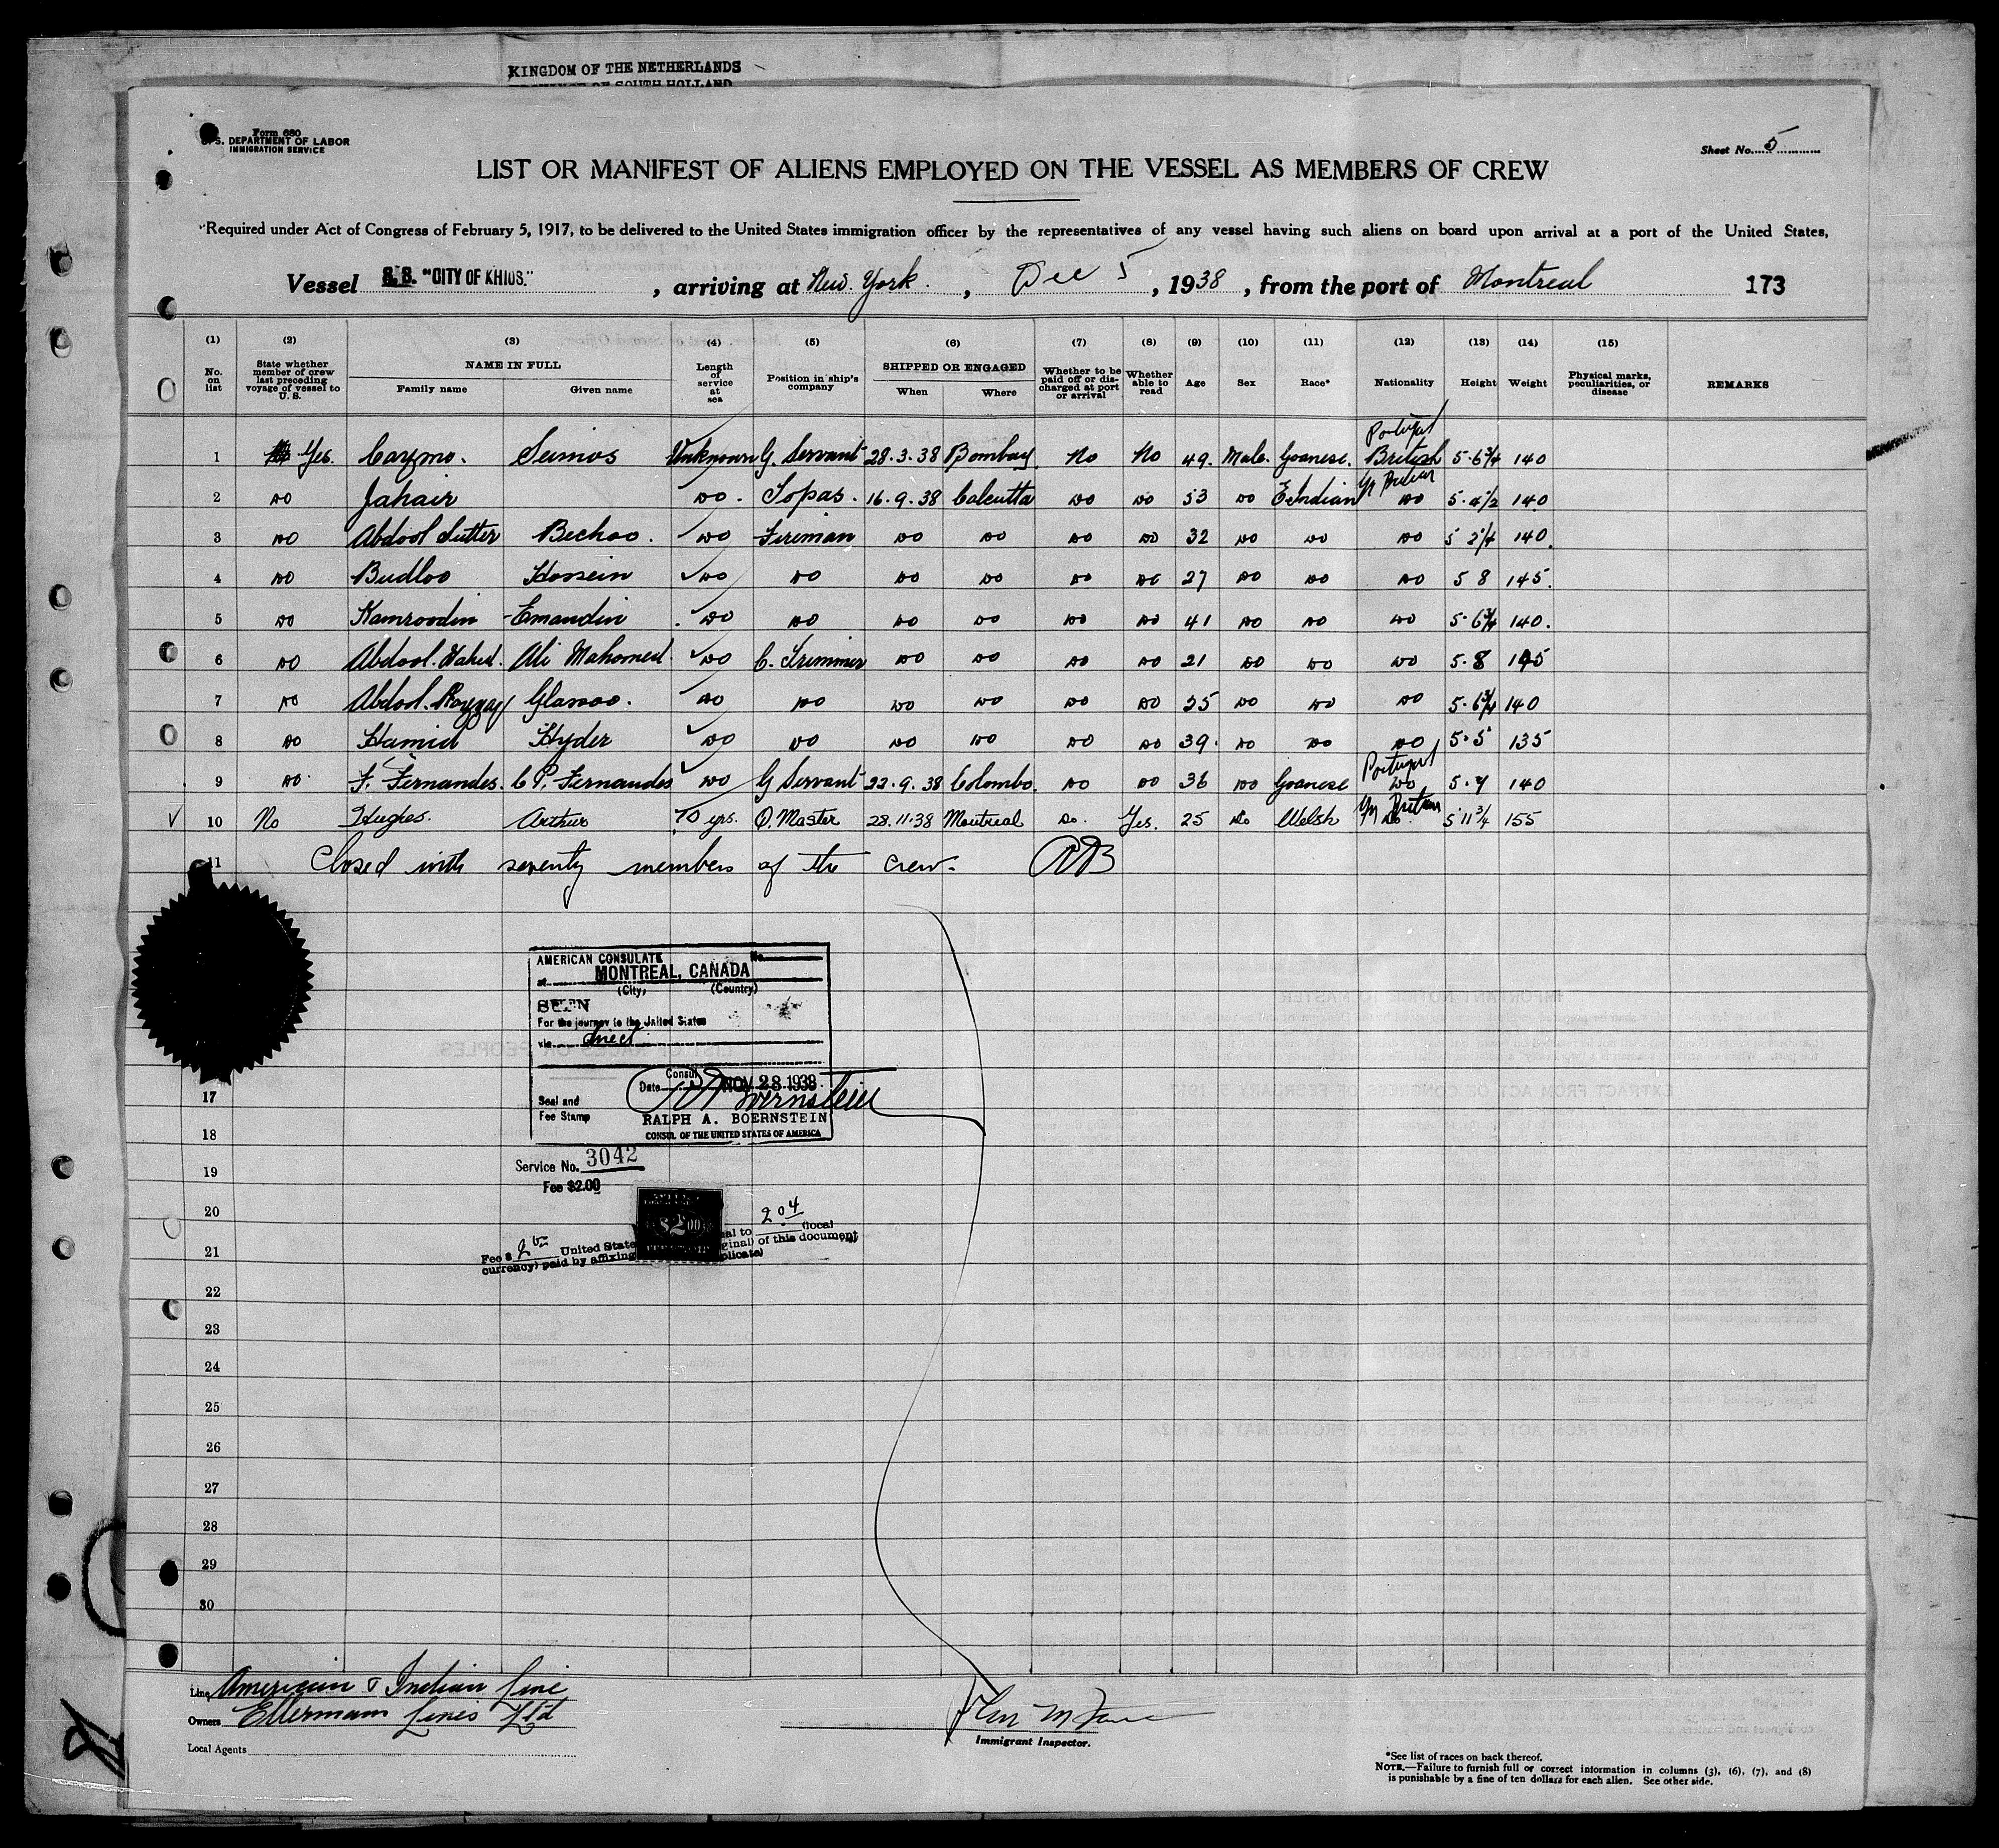 KINGDOM OF THE NETHERLANDS
Form 680
U.S. DEPARTMENT OF LABOR
IMMIGRATION SERVICE
Sheet No. 5
LIST OR MANIFEST OF ALIENS EMPLOYED ON THE VESSEL AS MEMBERS OF CREW
Required under Act of Congress of February 5, 1917, to be delivered to the United States immigration officer by the representatives of any vessel having such aliens on board upon arrival at a port of the United States,
Vessel S.S. "CITY OF KHIOS." , arriving at New York. , Dec 5 , 1938 , from the port of Montreal 173
(1) (2) (3) (4) (5) (6) (7) (8) (9) (10) (11) (12) (13) (14) (15)
No. on list State whether member of crew last preceding voyage of vessel to U. S. NAME IN FULL Family name Given name Length of service at sea Position in ship's company SHIPPED OR ENGAGED When Where Whether to be paid off or discharged at port or arrival Whether able to read Age Sex Race* Nationality Height Weight Physical marks, peculiarities, or disease REMARKS
Portugal
1 Yes. Caymo. Unknown G. Servant 28.3.38 Bombay. No No 49. Male. Goanese. British 5-6¾ 140
Gr Britain
2 DO Jahair DO. Topas. 16.9.38 Calcutta DO DO 53 DO E.Indian DO 5-4½ 140
3 DO Abdool Sutter Bechoo. DO Fireman DO DO DO DO 32 DO DO DO 5 2¼ 140.
4 DO Budloo Hossein DO DO DO DO DO DO 27 DO DO DO 5 8 145.
5 DO Kamroodin Emandin DO DO DO DO DO DO 41 DO DO DO 5-6¾ 140.
6 DO Abdool. Ali Mahomed. DO C. Trimmer DO DO DO DO 21 DO DO DO 5.8 145
7 DO Abdool. DO DO DO DO DO DO 25 DO DO DO 5-6¾ 140
8 DO Hamid Hyder DO DO DO DO DO DO 39. DO DO DO 5.5 135
Portugal
9 DO. F. Fernandes. C P. Fernandes DO G Servant 22.9.38 Colombo. DO DO 36 DO Goanese DO 5.4 140
Gr Britain
10 No Hughes. Arthur 10 yrs. Q. Master 28.11.38 Montreal Do. Yes. 25 Do Welsh Do. 5'11¾ 155
11 Closed with seventy members of the crew. RAB
AMERICAN CONSULATE No.
at MONTREAL, CANADA
(City) (Country)
SEEN
For the journey to the United States
via direct
Consul
Date NOV 28 1938
Seal and
Fee Stamp
RA Boernstein
RALPH A. BOERNSTEIN
CONSUL OF THE UNITED STATES OF AMERICA
17
18
Service No. 3042
19
Fee $2.00
20
$2.00
21
Fee $ United State al to 2 04 (local
currency) paid by affixing ginal) of this document
plicate)
22
23
24
25
26
27
28
29
30
Line American & Indian Line
Owners Ellermans Lines Ltd
Local Agents
Immigrant Inspector.
*See list of races on back thereof.
NOTE.—Failure to furnish full or correct information in columns (3), (6), (7), and (8)
is punishable by a fine of ten dollars for each alien. See other side.